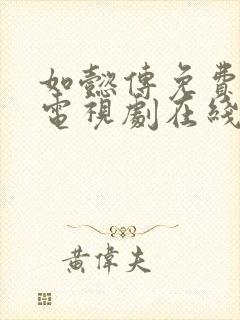 如懿傳免費
電視劇在綫
黃偉夫